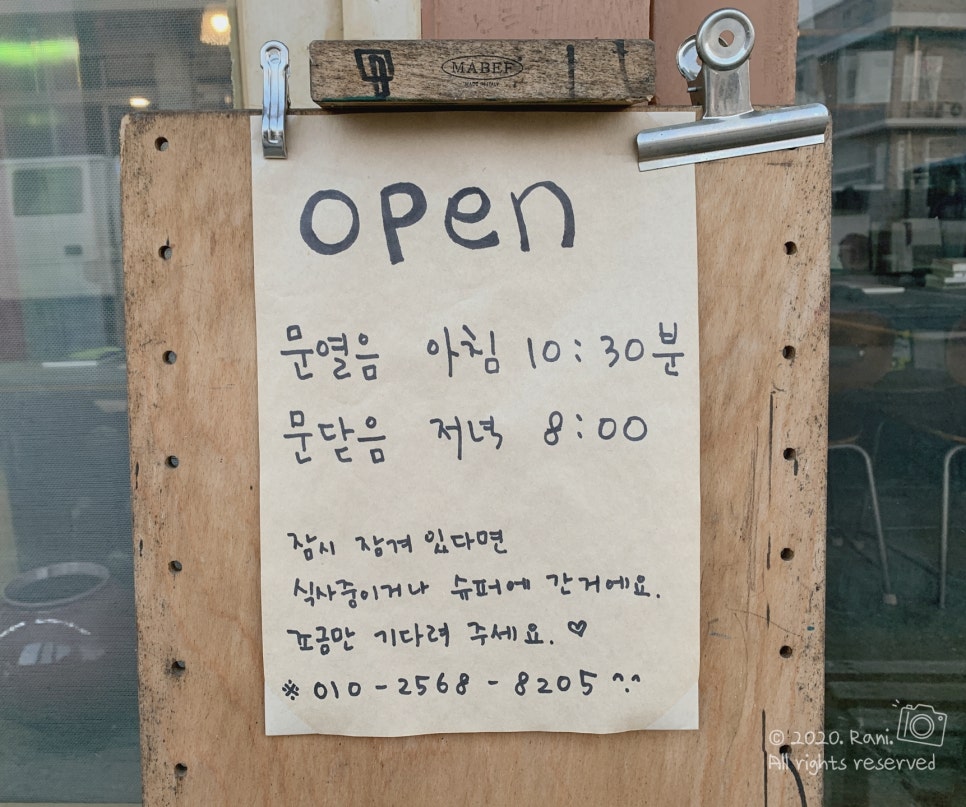 MABEF
open
문열음 아침 10:30분
문닫음 저녁 8:00
잠시 잠겨 있다면
식사중이거나 슈퍼에 간거에요.
조금만 기다려 주세요. ♡
※ 010-2568-8205 ^.^
© 2020. Rani.
All rights reserved